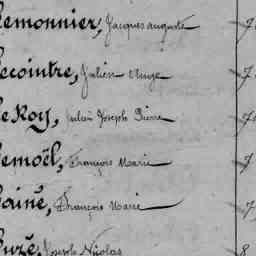 Lemonnier, Jacques auguste 7
Lecointre, Julien Ange 7
Le Roy, Julien Joseph Pierre 7
Lemoël, François Marie 7
Lainé, François Marie 7
Luzé, Joseph Nicolas 8